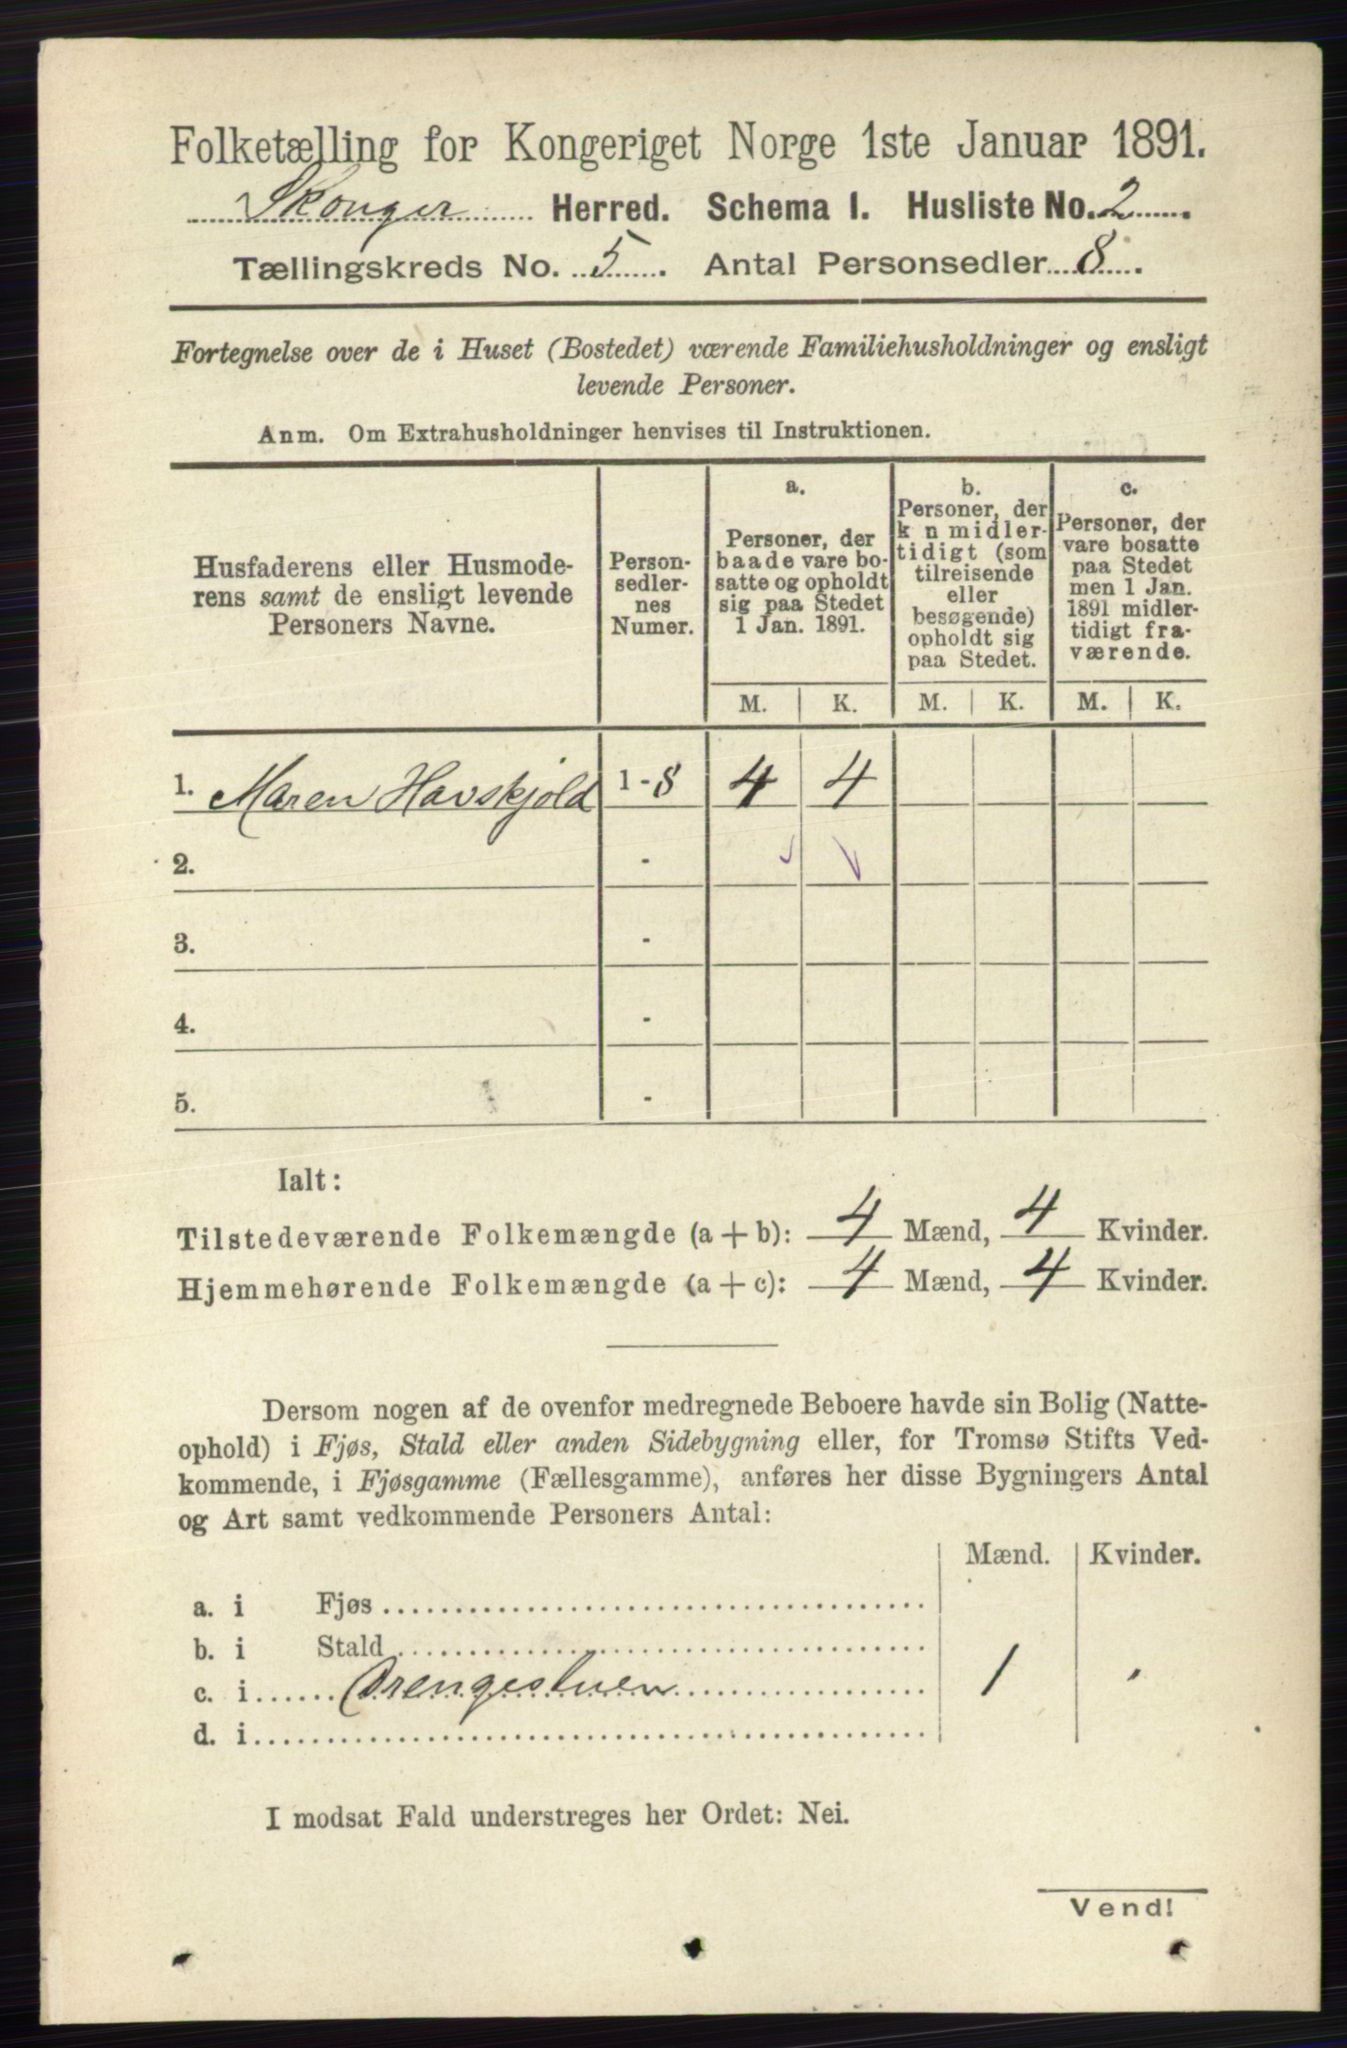 Folketælling for Kongeriget Norge 1ste Januar 1891.
Skouger Herred. Schema I. Husliste No. 2
Tællingskreds No. 5. Antal Personsedler 8.
Fortegnelse over de i Huset (Bostedet) værende Familiehusholdninger og ensligt
levende Personer.
Anm. Om Extrahusholdninger henvises til Instruktionen.
Husfaderens eller Husmode-
rens samt de ensligt levende
Personers Navne.
Person-
sedler-
nes
Numer.
a.
Personer, der
baade vare bo-
satte og opholdt
sig paa Stedet
1 Jan. 1891.
b.
Personer, der
k n midler-
tidigt (som
tilreisende
eller
besøgende)
opholdt sig
paa Stedet.
c.
Personer, der
vare bosatte
paa Stedet
men 1 Jan.
1891 midler-
tidigt fra-
værende.
M. K. M. K. M. K.
1. Maren Havskjold 1-8 4 4
2. -
3. -
4. -
5. -
Ialt:
Tilstedeværende Folkemængde (a + b): 4 Mænd, 4 Kvinder.
Hjemmehørende Folkemængde (a + c): 4 Mænd, 4 Kvinder.
Dersom nogen af de ovenfor medregnede Beboere havde sin Bolig (Natte-
ophold) i Fjøs, Stald eller anden Sidebygning eller, for Tromsø Stifts Ved-
kommende, i Fjøsgamme (Fællesgamme), anføres her disse Bygningers Antal
og Art samt vedkommende Personers Antal:
Mænd. Kvinder.
a. i Fjøs
b. i Stald
c. i Drengestuen 1 "
d. i
I modsat Fald understreges her Ordet: Nei.
Vend!